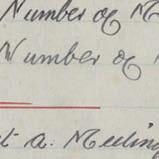 Number of M
Number of M
t a. Meeting